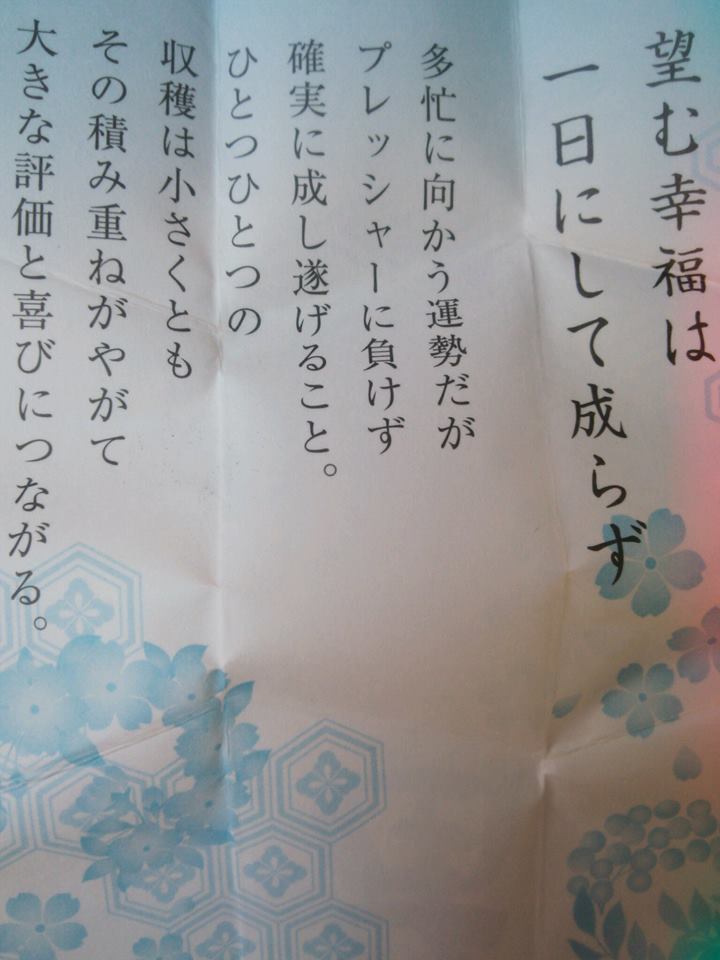 望む幸福は
一日にして成らず
多忙に向かう運勢だが
プレッシャーに負けず
確実に成し遂げること。
ひとつひとつの
収穫は小さくとも
その積み重ねがやがて
大きな評価と喜びにつながる。